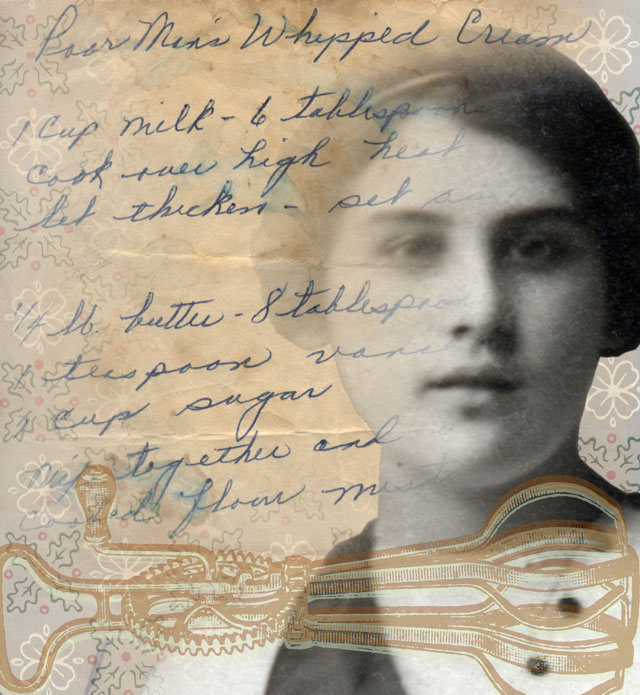 Poor Man's Whipped Cream
1 Cup milk - 6 tablespoons
cook over high heat
let thicken - set as
1/4 lb. butter - 8 tablespoon
1 teaspoon
1 cup sugar
mix together and
cooked flour